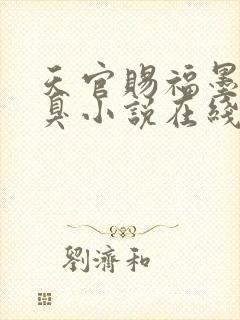 天官賜福墨
臭小説在綫
劉濟和